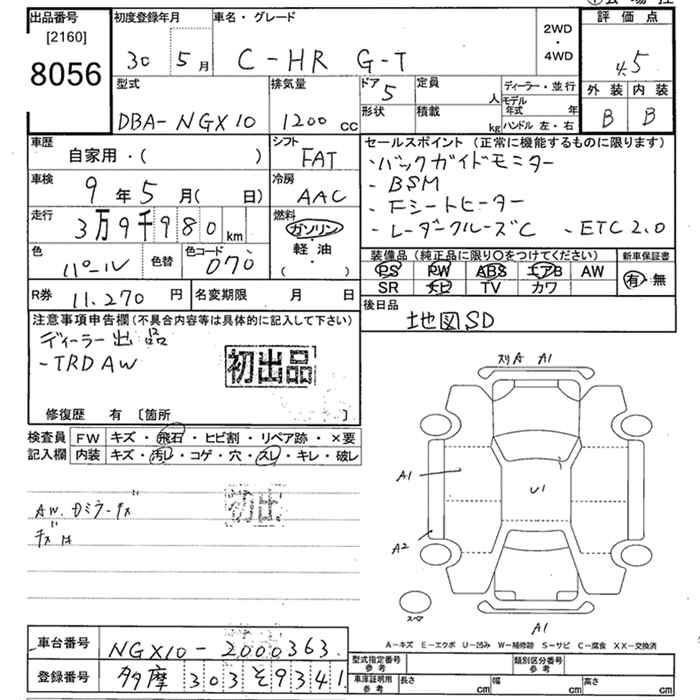 出品番号
[2160]
8056
初度登録年月
30 5月
車名・グレード
C-HR G-T
2WD
・
4WD
評価点
4.5
外装 内装
B B
型式
DBA-NGX10
排気量
1200 cc
ドア 5
形状
定員 人
積載 kg
ディーラー・並行
モデル年式 年
ハンドル 左・右
車歴
自家用・( )
シフト
FAT
車検
9年5月( 日)
冷房
AAC
走行
3万9千980km
燃料
ガソリン
・
軽油
( ・ )
色
パール
色替
色コード
070
R券 11,270 円
名変期限 月 日
セールスポイント (正常に機能するものに限ります)
・バックガイドモニター
・BSM
・Fシートヒーター
・レーダークルーズC 、ETC2.0
装備品 (純正品に限り○をつけてください)
PS PW ABS エアB AW
SR ナビ TV カワ
新車保証書
有・無
後日品
地図SD
注意事項申告欄(不具合内容等は具体的に記入して下さい)
ディーラー出品
-TRDAW
初出品
修復歴 有 〔箇所 〕
検査員記入欄
FW キズ・飛石・ヒビ割・リペア跡・×要
内装 キズ・汚レ・コゲ・穴・スレ・キレ・破レ
初出
スリA A1
A1
U1
A2
A1
スペア
A-キズ E-エクボ U-凹み W-補修跡 S-サビ C-腐食 XX-交換済
車台番号 NGX10-2000363
登録番号 多摩 303 そ 9341
型式指定番号 参考
類別区分番号 参考
車庫証明用 参考 長さ cm 幅 cm 高さ cm